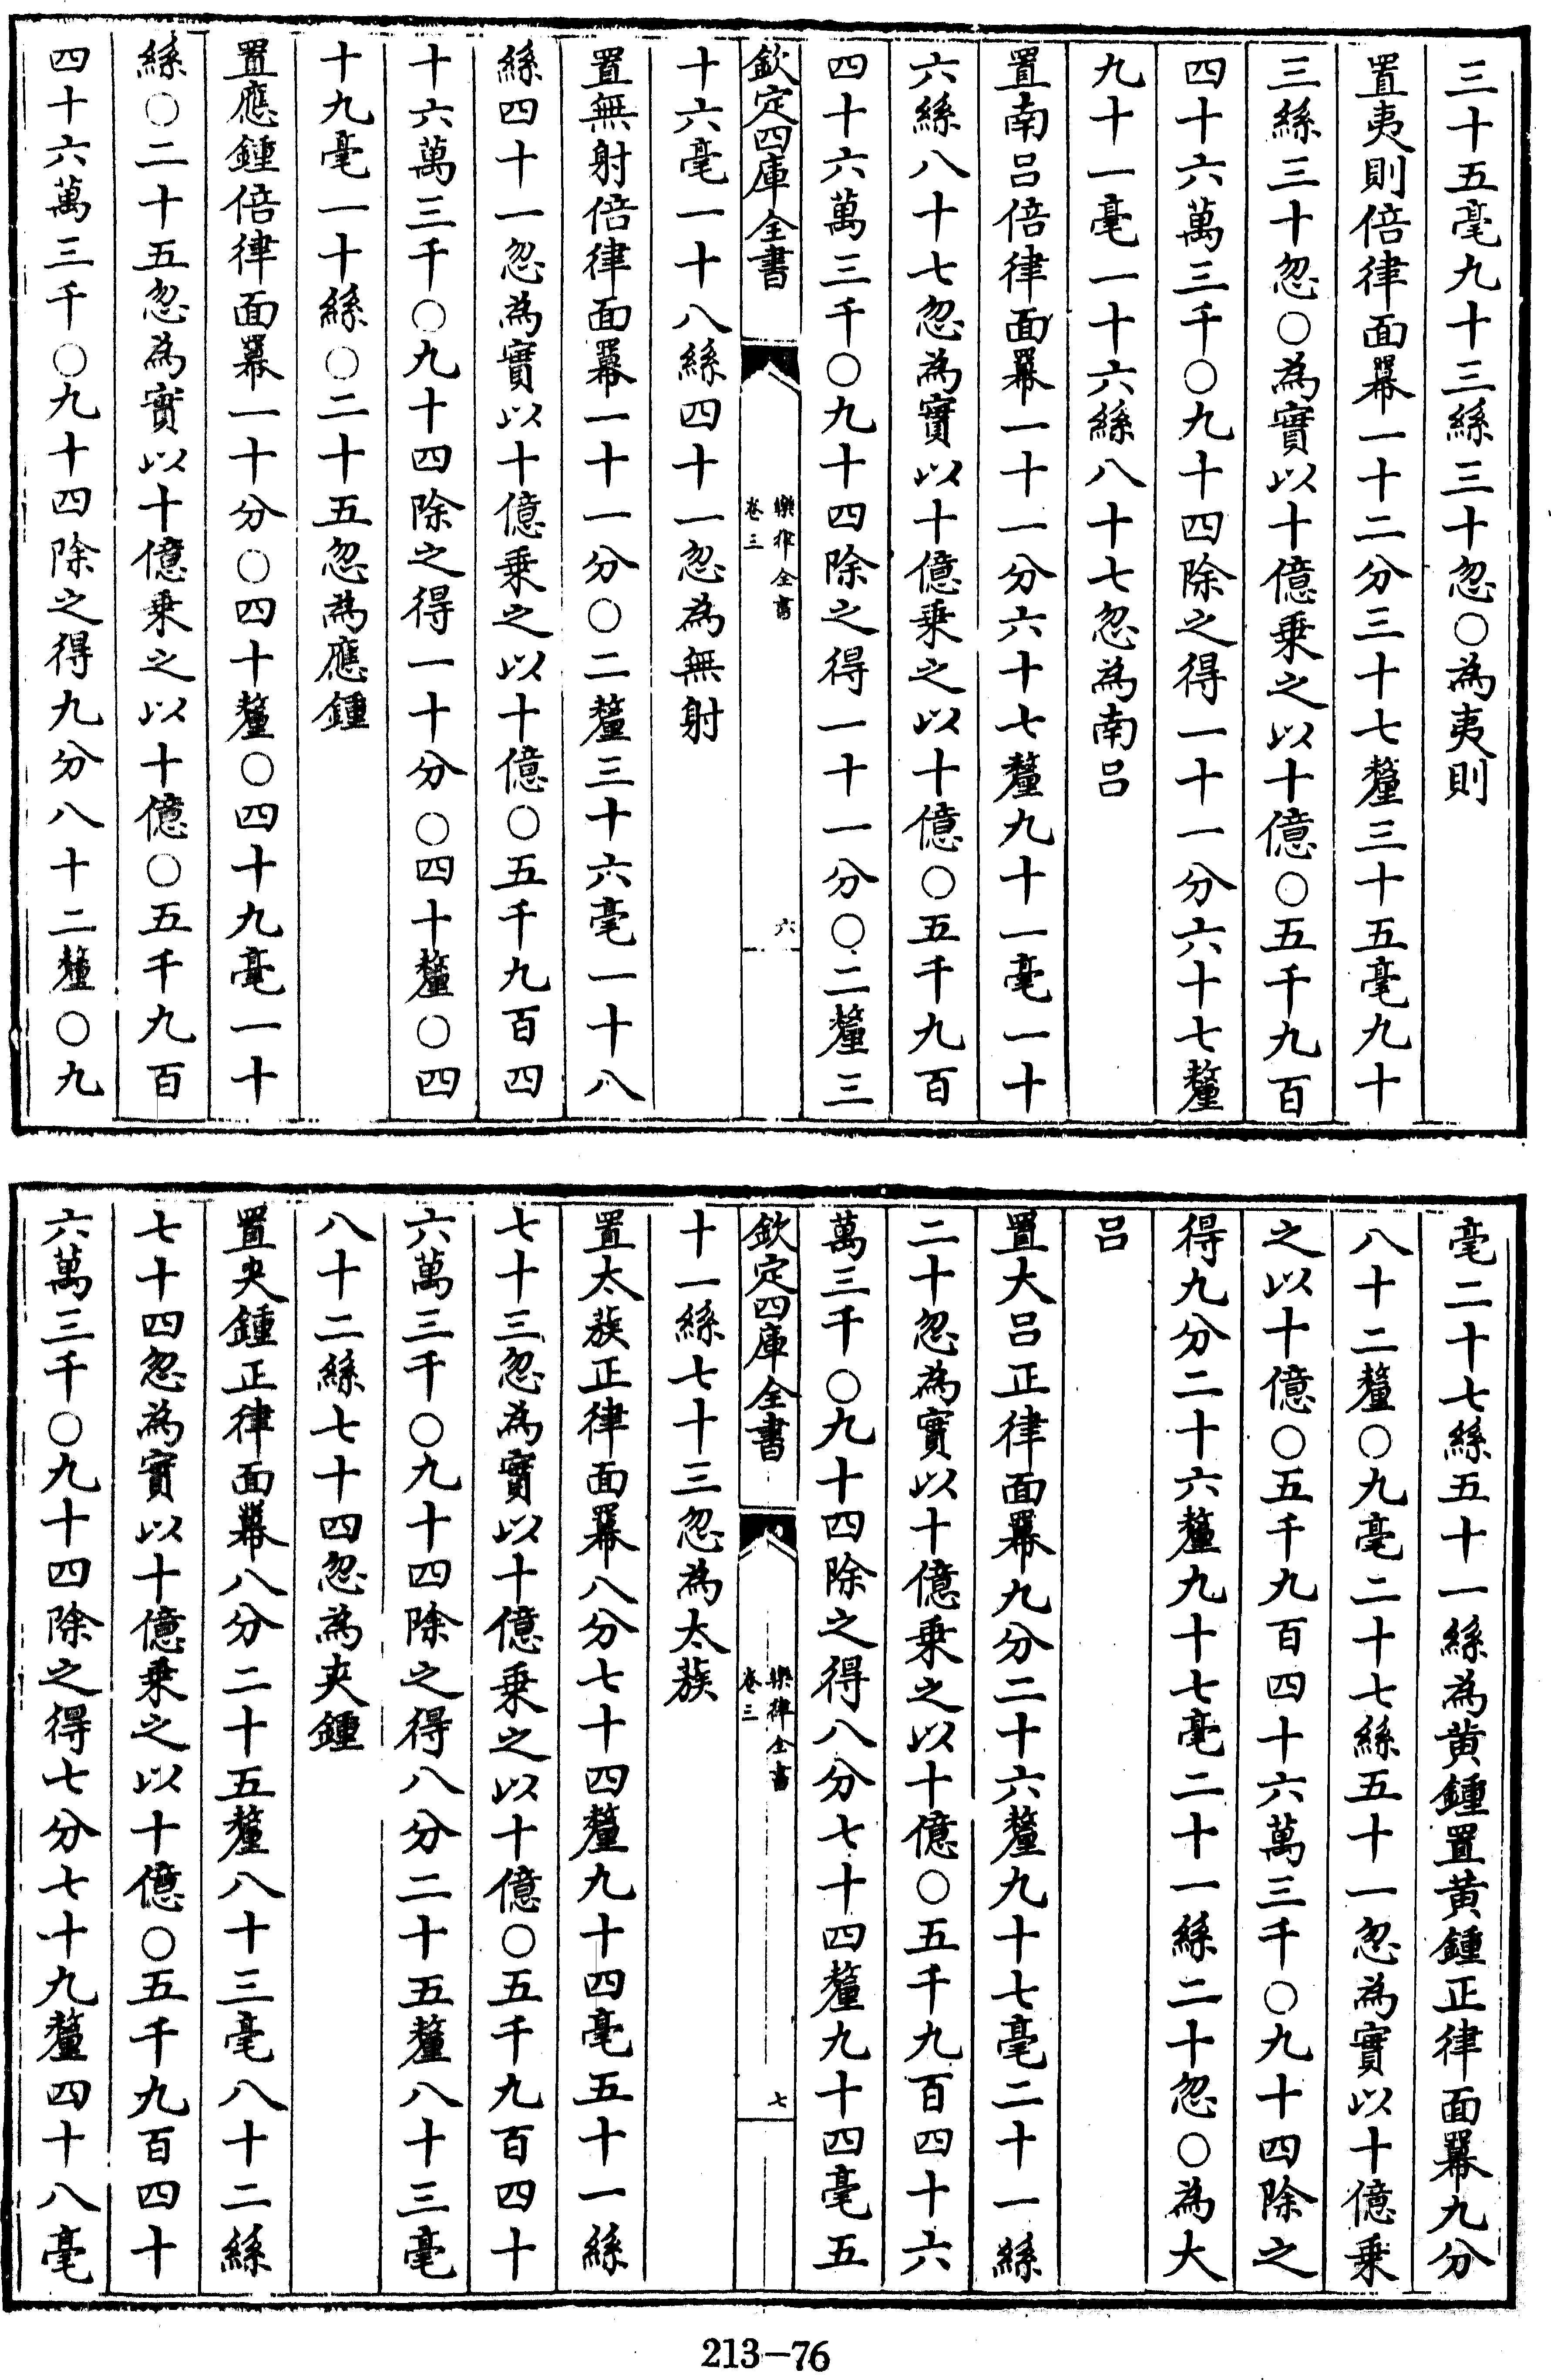 三十五毫九十三絲三十忽〇為夷則
置夷則倍律面羃一十二分三十七釐三十五毫九十
三絲三十忽〇為實以十億乗之以十億〇五千九百
四十六萬三千〇九十四除之得一十一分六十七釐
九十一毫一十六絲八十七忽為南呂
置南呂倍律面羃一十一分六十七釐九十一毫一十
六絲八十七忽為實以十億乗之以十億〇五千九百
四十六萬三千〇九十四除之得一十一分〇二釐三
欽定四庫全書
樂律全書
卷三
六
十六毫一十八絲四十一忽為無射
置無射倍律面羃一十一分〇二釐三十六毫一十八
絲四十一忽為實以十億乗之以十億〇五千九百四
十六萬三千〇九十四除之得一十分〇四十釐〇四
十九毫一十絲〇二十五忽為應鍾
置應鍾倍律面羃一十分〇四十釐〇四十九毫一十
絲〇二十五忽為實以十億乗之以十億〇五千九百
四十六萬三千〇九十四除之得九分八十二釐〇九
毫二十七絲五十一絲為黄鍾置黄鍾正律面羃九分
八十二釐〇九毫二十七絲五十一忽為實以十億乗
之以十億〇五千九百四十六萬三千〇九十四除之
得九分二十六釐九十七毫二十一絲二十忽〇為大
呂
置大呂正律面羃九分二十六釐九十七毫二十一絲
二十忽為實以十億乗之以十億〇五千九百四十六
萬三千〇九十四除之得八分七十四釐九十四毫五
欽定四庫全書
樂律全書
卷三
七
十一絲七十三忽為太蔟
置太蔟正律面羃八分七十四釐九十四毫五十一絲
七十三忽為實以十億乗之以十億〇五千九百四十
六萬三千〇九十四除之得八分二十五釐八十三毫
八十二絲七十四忽為夾鍾
置夾鍾正律面羃八分二十五釐八十三毫八十二絲
七十四忽為實以十億乗之以十億〇五千九百四十
六萬三千〇九十四除之得七分七十九釐四十八毫
213-76